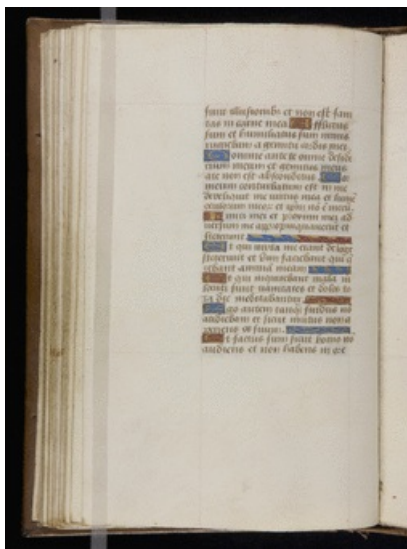 sunt illusionibꝰ et non est sani
tas in carne mea Afflictus
sum et humiliatus sum nimis
rugiebam a gemitu cordis mei
Domine ante te omne deside
rium meum et gemitus meus
a te non est absconditus Cor
meum conturbatum est in me
dereliquit me virtus mea et lumē
oculorum meoꝝ et ipm̄ nō ē mecū
Amici mei et proximi mei ad
versum me appropinquaverūt et
steterunt
Et qui iuxta me erant de longe
steterunt et vim faciebant qui q̄
rebant animā meam
Et qui inquirebant mala m̄
locuti sunt vanitates et dolos to
ta die meditabantur
Ego autem tanq̄ surdus nō
audiebam et sicut mutus non a
periens os suum
Et factus sum sicut homo nō
audiens et non habens in ore